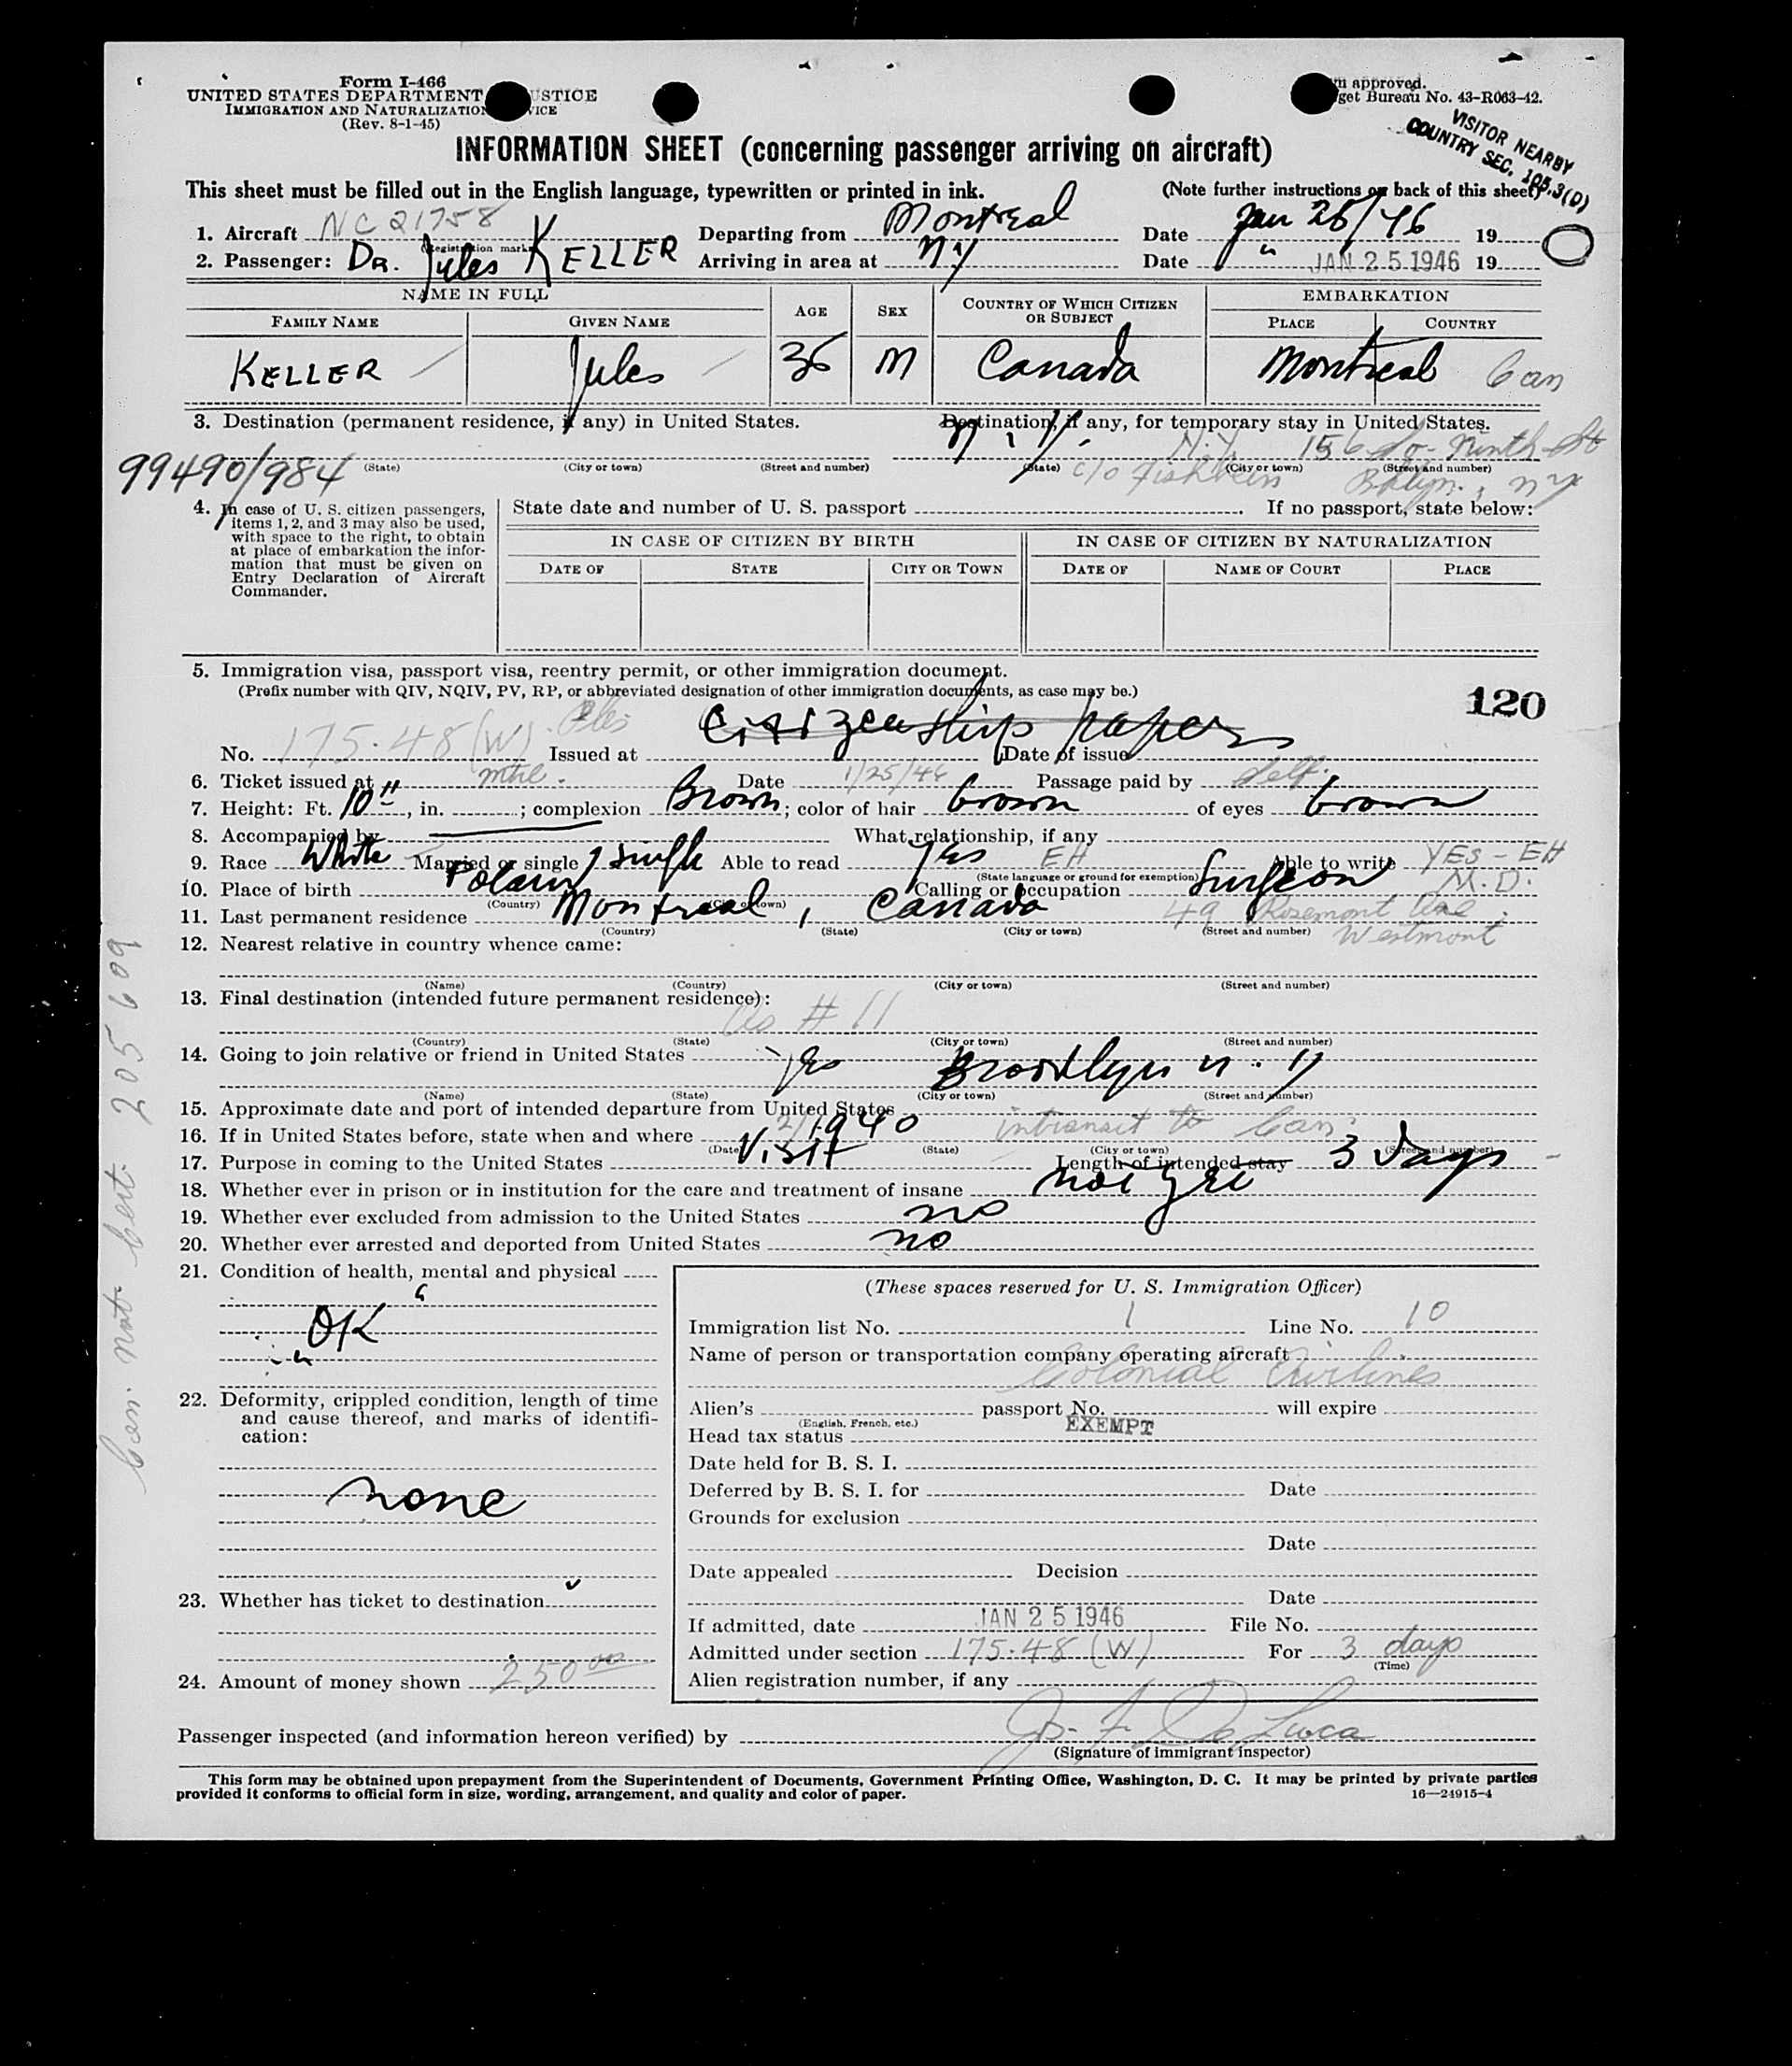 Form I-466
UNITED STATES DEPARTMENT USTICE
IMMIGRATION AND NATURALIZATION VICE
(Rev. 8-1-45)
m approved.
get Bureau No. 43-R063-42.
VISITOR NEARBY
COUNTRY SEC. 105.3(D)
INFORMATION SHEET (concerning passenger arriving on aircraft)
This sheet must be filled out in the English language, typewritten or printed in ink. (Note further instructions on back of this sheet)
1. Aircraft NC 21758 Departing from Montreal Date Jan 25/46 19
(Registration marks)
2. Passenger: DR. Jules KELLER Arriving in area at NY Date " JAN 25 1946 19
NAME IN FULL AGE SEX COUNTRY OF WHICH CITIZEN OR SUBJECT EMBARKATION
FAMILY NAME GIVEN NAME PLACE COUNTRY
KELLER Jules 35 M Canada Montreal Can
3. Destination (permanent residence, if any) in United States. Destination, if any, for temporary stay in United States.
N.Y. N.Y. 156 So. Ninth St
99490/984 (State) (City or town) (Street and number) (State) (City or town) (Street and number)
c/o Fishbein Bklyn., NY
4. In case of U. S. citizen passengers, items 1, 2, and 3 may also be used, with space to the right, to obtain at place of embarkation the information that must be given on Entry Declaration of Aircraft Commander.
State date and number of U. S. passport . If no passport, state below:
IN CASE OF CITIZEN BY BIRTH IN CASE OF CITIZEN BY NATURALIZATION
DATE OF STATE CITY OR TOWN DATE OF NAME OF COURT PLACE
5. Immigration visa, passport visa, reentry permit, or other immigration document.
(Prefix number with QIV, NQIV, PV, RP, or abbreviated designation of other immigration documents, as case may be.)
120
Citizenship papers
No. 175.48(W) Issued at Date of issue
6. Ticket issued at mtl. Date 1/25/46 Passage paid by self.
7. Height: Ft. 10", in. ; complexion Brown; color of hair brown of eyes brown
8. Accompanied by What relationship, if any
9. Race White Married or single single Able to read yes EH Able to write YES - EH
(State language or ground for exemption)
10. Place of birth Poland Calling or occupation Surgeon M.D.
(Country) (City or town)
11. Last permanent residence Montreal, Canada 49 Rosemont Ave.
(Country) (State) (City or town) (Street and number) Westmont
12. Nearest relative in country whence came:
(Name) (Country) (City or town) (Street and number)
13. Final destination (intended future permanent residence):
As # 11
(Country) (State) (City or town) (Street and number)
14. Going to join relative or friend in United States yes Brooklyn N.Y
(Name) (State) (City or town) (Street and number)
15. Approximate date and port of intended departure from United States
16. If in United States before, state when and where 2/1940 intransit to Can.
(Date) (State) (City or town) (Street and number)
17. Purpose in coming to the United States Visit Length of intended stay 3 days
18. Whether ever in prison or in institution for the care and treatment of insane not yet
19. Whether ever excluded from admission to the United States no
20. Whether ever arrested and deported from United States no
21. Condition of health, mental and physical
OK
22. Deformity, crippled condition, length of time and cause thereof, and marks of identification:
none
23. Whether has ticket to destination
24. Amount of money shown 250 00
(These spaces reserved for U. S. Immigration Officer)
Immigration list No. 1 Line No. 10
Name of person or transportation company operating aircraft
Colonial Airlines
Alien's passport No. will expire
(English, French, etc.)
Head tax status EXEMPT
Date held for B. S. I.
Deferred by B. S. I. for Date
Grounds for exclusion
Date
Date appealed Decision
Date
If admitted, date JAN 25 1946 File No.
Admitted under section 175.48 (W) For 3 days
(Time)
Alien registration number, if any
Passenger inspected (and information hereon verified) by Jos. F. De Luca
(Signature of immigrant inspector)
This form may be obtained upon prepayment from the Superintendent of Documents, Government Printing Office, Washington, D. C. It may be printed by private parties
provided it conforms to official form in size, wording, arrangement, and quality and color of paper. 16—24915-4
Can. nat. Cert. 205609